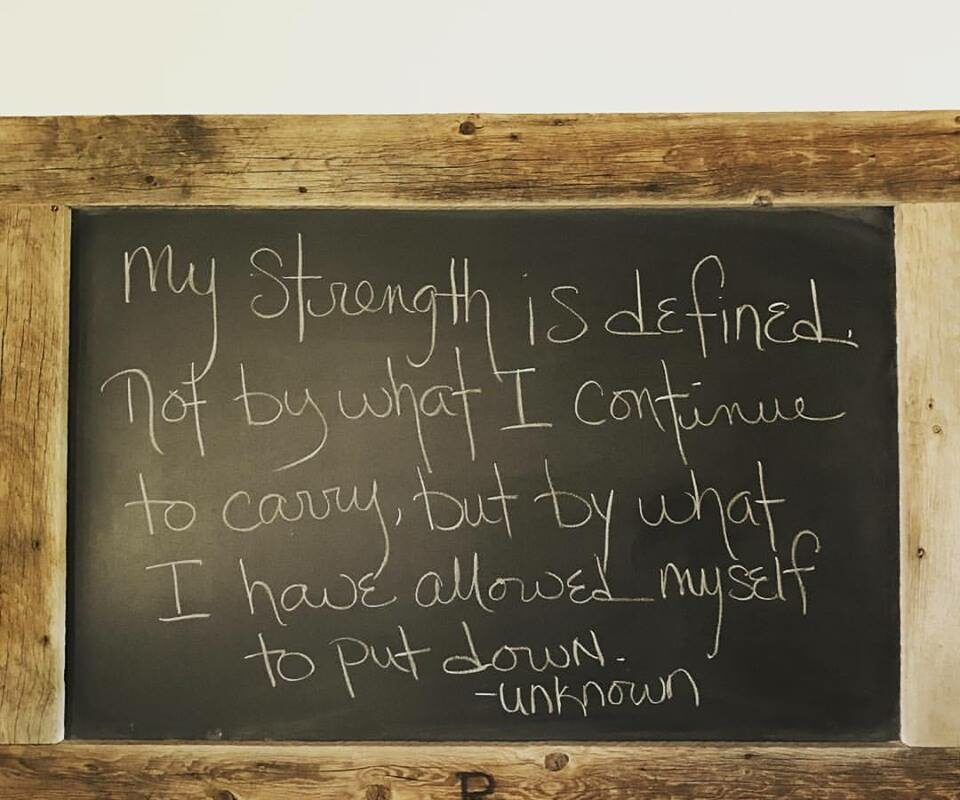 My Strength is defined.
Not by what I continue
to carry, but by what
I have allowed myself
to put down.
-unknown
R